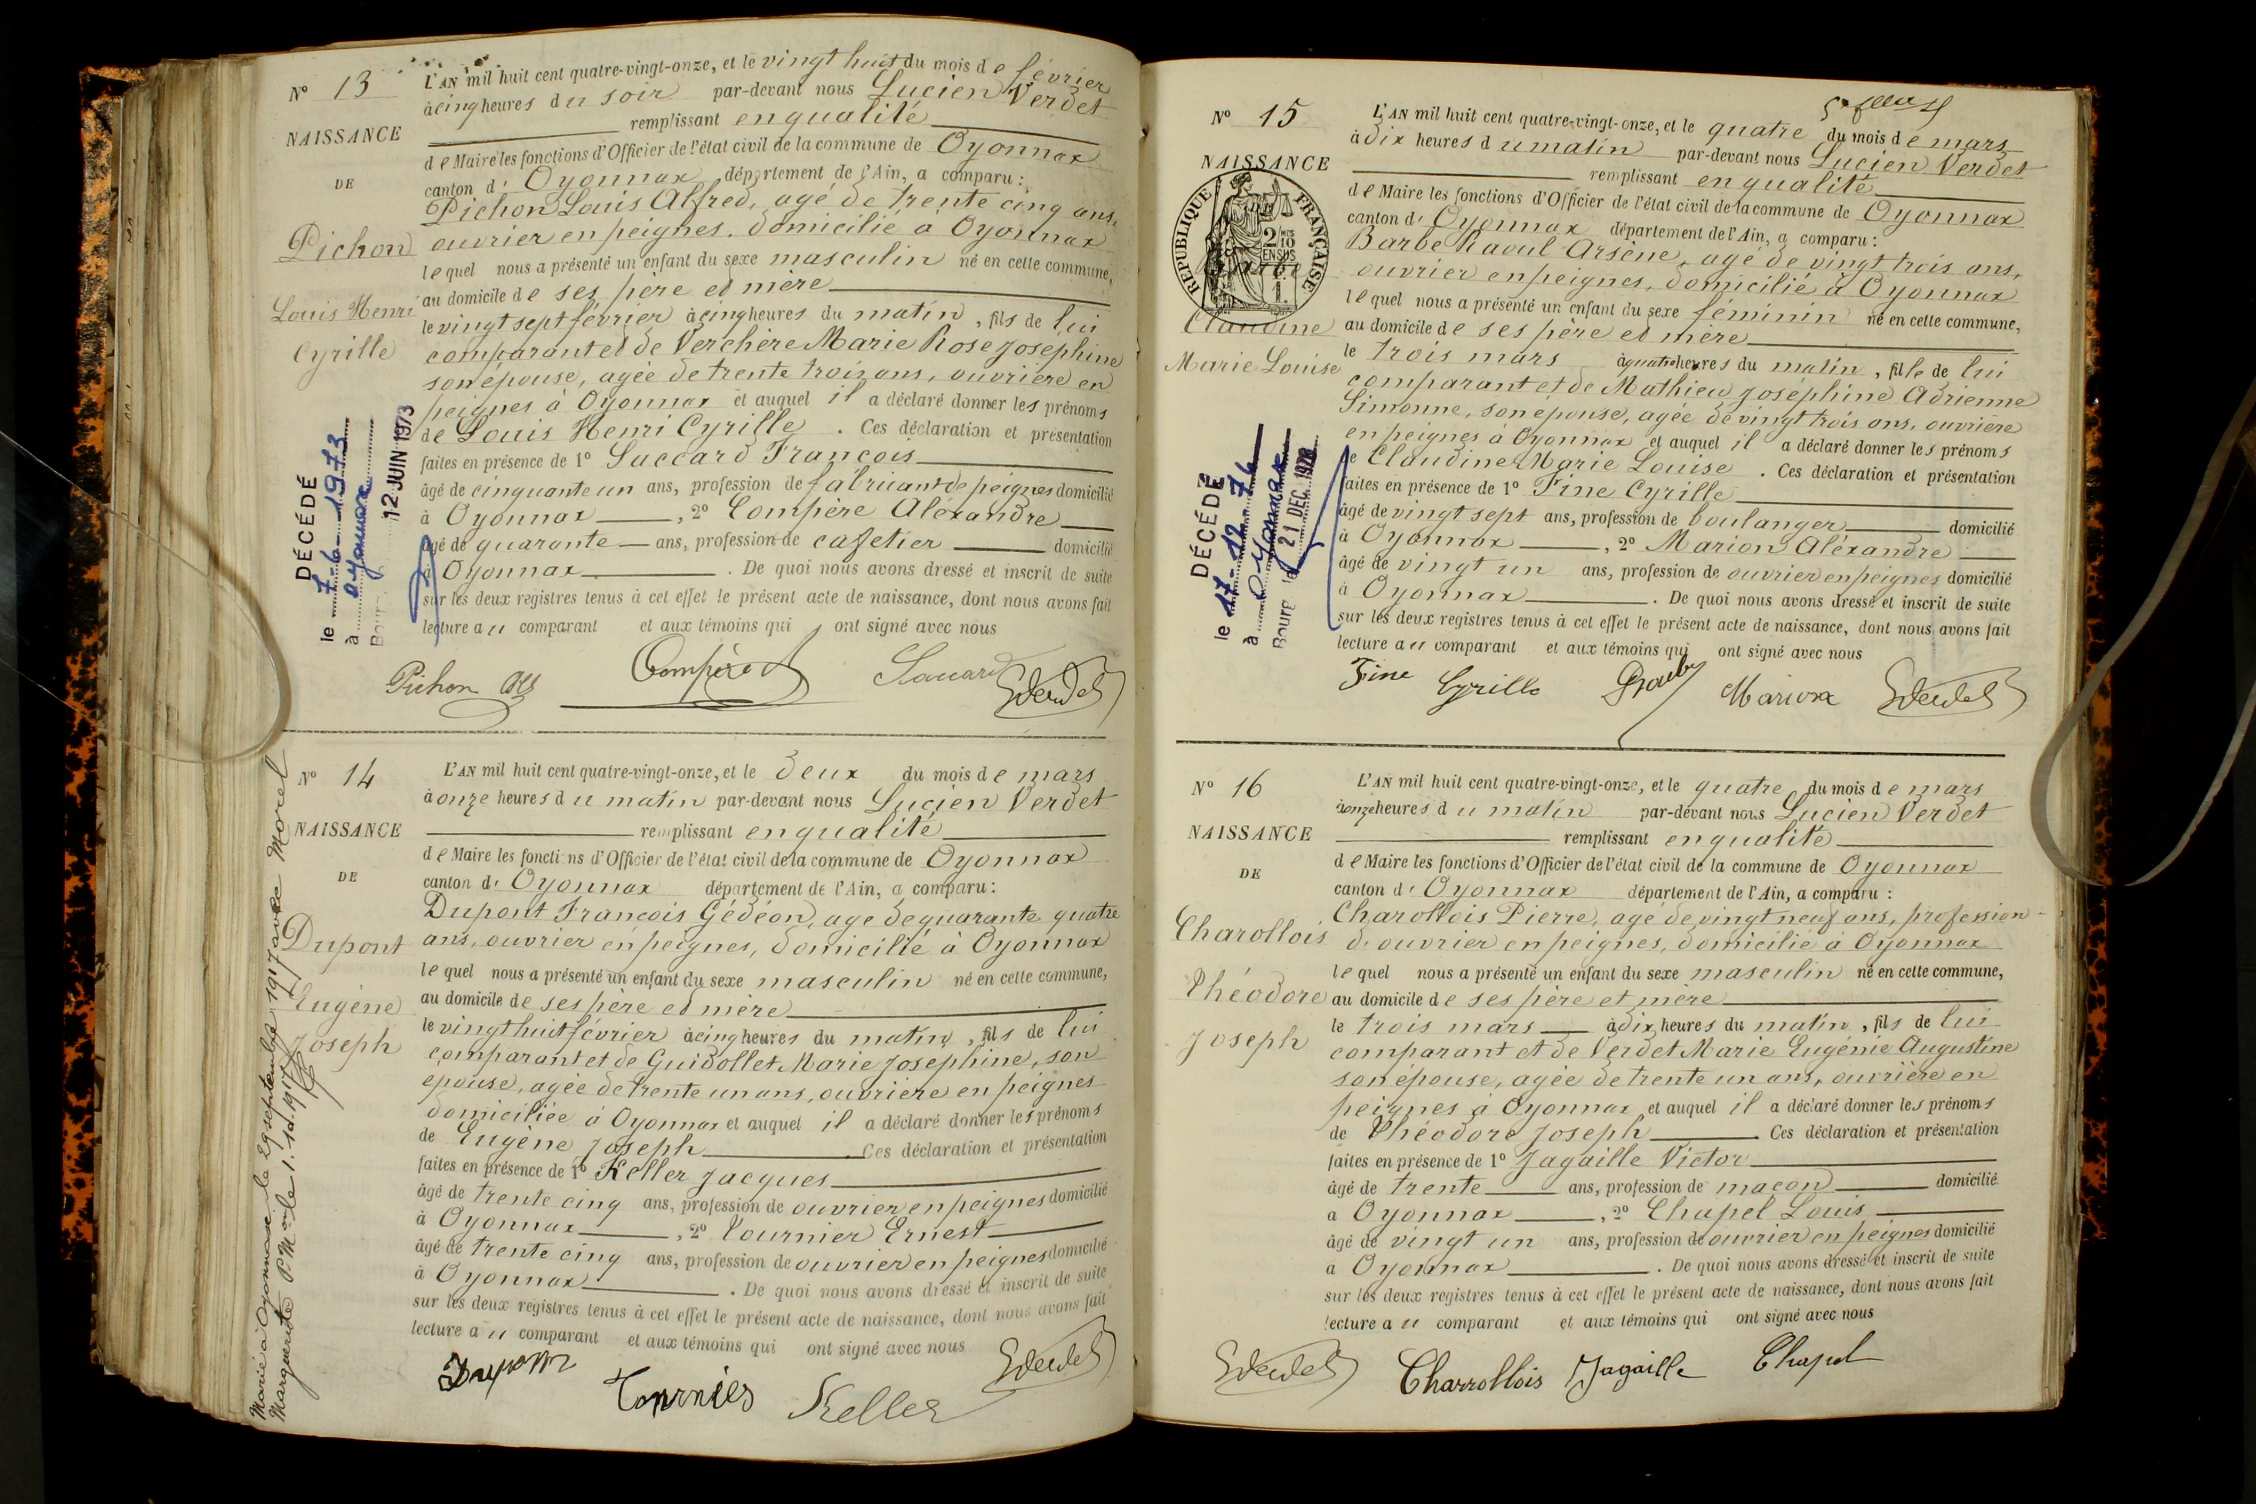 N° 13
NAISSANCE
DE
Pichon
Louis Henri
Cyrille
DÉCÉDÉ
le 7-6-1973
à Oyonnax
12 JUIN 1973
L'AN mil huit cent quatre-vingt-onze, et le vingt huit du mois de février
à cinq heures du soir par-devant nous Lucien Verdet
remplissant en qualité
de Maire les fonctions d'Officier de l'état civil de la commune de Oyonnax
canton d' Oyonnax département de l'Ain, a comparu :
Pichon Louis Alfred, agé de trente cinq ans,
ouvrier en peignes, domicilié à Oyonnax
lequel nous a présenté un enfant du sexe masculin né en cette commune,
au domicile de ses père et mère
le vingt sept février à cinq heures du matin, fils de lui
comparant et de Verchère Marie Rose Josephine
son épouse, agée de trente trois ans, ouvrière en
peignes à Oyonnax et auquel il a déclaré donner les prénoms
de Louis Henri Cyrille. Ces déclaration et présentation
faites en présence de 1° Saccard François
âgé de cinquante un ans, profession de fabricant de peignes domicilié
à Oyonnax, 2° Compère Aléxandre
âgé de quarante ans, profession de cafetier domicilié
à Oyonnax. De quoi nous avons dressé et inscrit de suite
sur les deux registres tenus à cet effet le présent acte de naissance, dont nous avons fait
lecture au comparant et aux témoins qui ont signé avec nous
Pichon Compère
N° 14
NAISSANCE
DE
Dupont
Eugène
Joseph
Marié à Oyonnax le 29 septembre 1917 avec Morel
Marguerite
L'AN mil huit cent quatre-vingt-onze, et le deux du mois de mars
à onze heures du matin par-devant nous Lucien Verdet
remplissant en qualité
de Maire les fonctions d'Officier de l'état civil de la commune de Oyonnax
canton d' Oyonnax département de l'Ain, a comparu :
Dupont François Gédéon, age de quarante quatre
ans, ouvrier en peignes, domicilié à Oyonnax
lequel nous a présenté un enfant du sexe masculin né en cette commune,
au domicile de ses père et mère
le vingt huit février à cinq heures du matin, fils de lui
comparant et de Guidollet Marie Josephine, son
épouse, agée de trente un ans, ouvrière en peignes
domiciliée à Oyonnax et auquel il a déclaré donner les prénoms
de Eugène Joseph. Ces déclaration et présentation
faites en présence de 1° Keller Jacques
âgé de trente cinq ans, profession de ouvrier en peignes domicilié
à Oyonnax, 2° Tournier Ernest
âgé de trente cinq ans, profession de ouvrier en peignes domicilié
à Oyonnax. De quoi nous avons dressé et inscrit de suite
sur les deux registres tenus à cet effet le présent acte de naissance, dont nous avons fait
lecture au comparant et aux témoins qui ont signé avec nous
Dupont Tournier Keller
N° 15
NAISSANCE
RÉPUBLIQUE FRANÇAISE
2/10 EN SUS
Barbe
Claudine
Marie Louise
DÉCÉDÉ
le 17-12-76
à Oyonnax
Bourg le 21 DEC.
L'AN mil huit cent quatre-vingt-onze, et le quatre du mois de mars
à dix heures du matin par-devant nous Lucien Verdet
remplissant en qualité
de Maire les fonctions d'Officier de l'état civil de la commune de Oyonnax
canton d' Oyonnax département de l'Ain, a comparu :
Barbe Raoul Arsène, agé de vingt trois ans,
ouvrier en peignes, domicilié à Oyonnax
lequel nous a présenté un enfant du sexe féminin né en cette commune,
au domicile de ses père et mère
le trois mars à quatre heures du matin, fille de lui
comparant et de Mathieu Joséphine Adrienne
Simonne, son épouse, agée de vingt trois ans, ouvrière
en peignes à Oyonnax et auquel il a déclaré donner les prénoms
de Claudine Marie Louise. Ces déclaration et présentation
faites en présence de 1° Fine Cyrille
âgé de vingt sept ans, profession de boulanger domicilié
à Oyonnax, 2° Marion Aléxandre
âgé de vingt un ans, profession de ouvrier en peignes domicilié
à Oyonnax. De quoi nous avons dressé et inscrit de suite
sur les deux registres tenus à cet effet le présent acte de naissance, dont nous avons fait
lecture au comparant et aux témoins qui ont signé avec nous
Fine Cyrille Marion
N° 16
NAISSANCE
DE
Charollois
Théodore
Joseph
L'AN mil huit cent quatre-vingt-onze, et le quatre du mois de mars
à onze heures du matin par-devant nous Lucien Verdet
remplissant en qualité
de Maire les fonctions d'Officier de l'état civil de la commune de Oyonnax
canton d' Oyonnax département de l'Ain, a comparu :
Charollois Pierre, age de vingt neuf ans, profession
d'ouvrier en peignes, domicilié à Oyonnax
lequel nous a présenté un enfant du sexe masculin né en cette commune,
au domicile de ses père et mère
le trois mars à dix heures du matin, fils de lui
comparant et de Verdet Marie Eugénie Augustine
son épouse, agée de trente un ans, ouvrière en
peignes à Oyonnax et auquel il a déclaré donner les prénoms
de Théodore Joseph. Ces déclaration et présentation
faites en présence de 1° Jagaille Victor
âgé de trente ans, profession de maçon domicilié
à Oyonnax, 2° Chapel Louis
âgé de vingt un ans, profession de ouvrier en peignes domicilié
à Oyonnax. De quoi nous avons dressé et inscrit de suite
sur les deux registres tenus à cet effet le présent acte de naissance, dont nous avons fait
lecture au comparant et aux témoins qui ont signé avec nous
Charrollois Jagaille Chapel